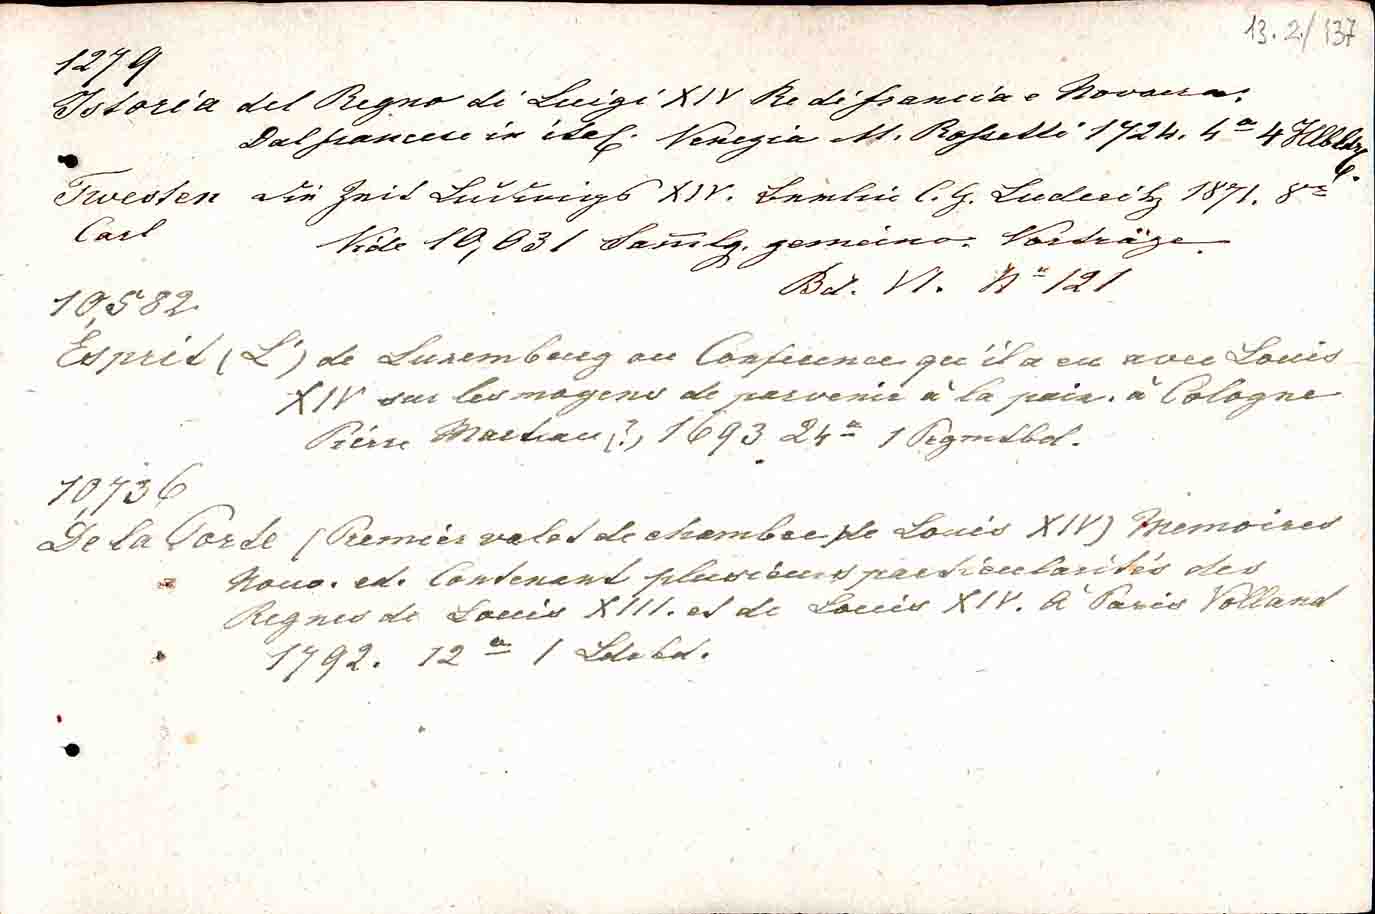 13.2/137
1279
Istoria del Regno di Luigi XIV Re di francia e Novarra.
Dal francese in ital. Venezia M. Rossetti 1724. 4° 4 Hlbldr
Twesten die Zeit Ludwigs XIV. Berlin C. G. Luderitz 1871. 8°
Carl Vide 10,031 Samlg. gemeino. Vorträge.
Bd. VI. N° 121
10,582
Esprit (L') de Luxembourg ou Conference qu'il a eu avec Louis
XIV sur les moyens de parvenir à la paix. à Cologne
Pierre Marteau (?) 1693 24° 1 Prgmtbd.
10,736
De la Porte (Premier valet de chambre de Louis XIV) Memoires
Nouv. ed. Contenant plusieurs particularités des
Regnes de Louis XIII. et de Louis XIV. A Paris Volland
1792. 12° 1 Ldrbd.